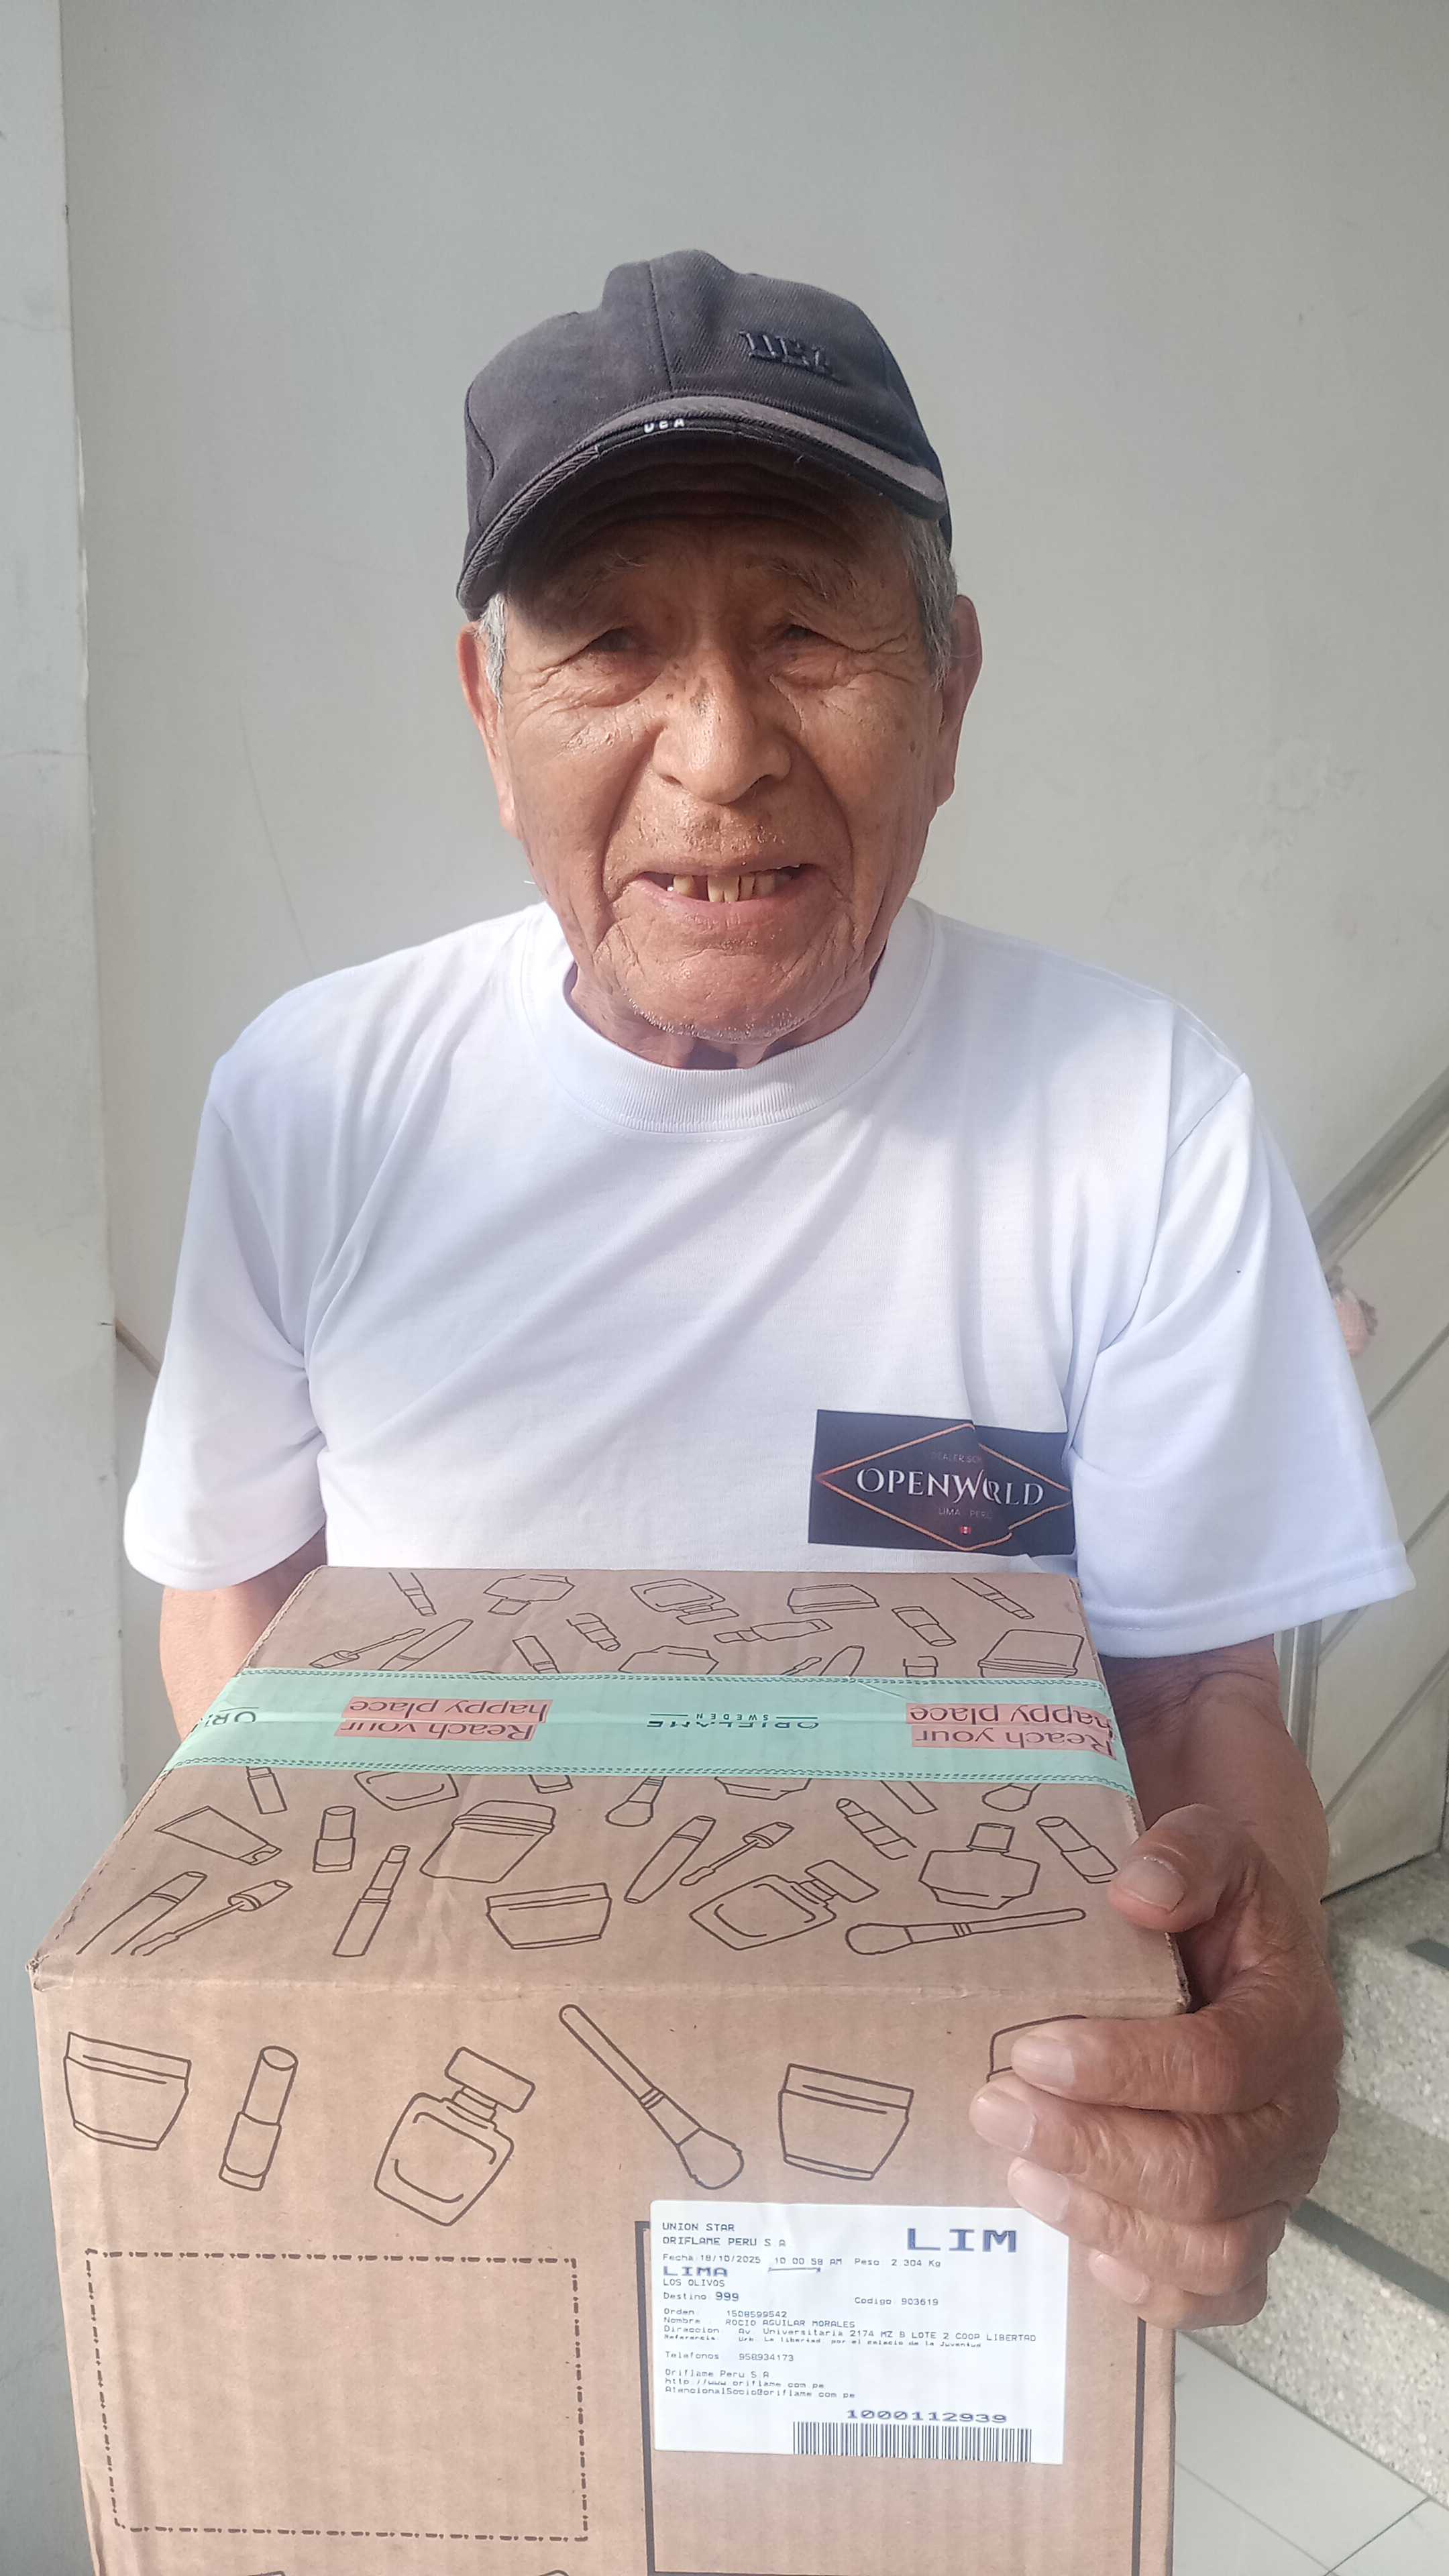 USA
DEALER SCH
OPENWORLD
LIMA PERU
Reach your
happy place
ORIFLAME
SWEDEN
Reach your
happy place
ORI
UNION STAR
LIM
ORIFLAME PERU S A
Fecha 18/10/2025 10 00 58 AM Peso 2 304 Kg
LIMA
LOS OLIVOS
Destino 999
Codigo 903619
Orden 1508599542
Nombre ROCIO AGUILAR MORALES
Direccion Av. Universitaria 2174 MZ B LOTE 2 COOP LIBERTAD
Referencia Urb. La libertad por el palacio de la Juventud
Telefonos 958934173
Oriflame Peru S A
http://www oriflame com pe
AtencionalSocio@oriflame com pe
1000112939